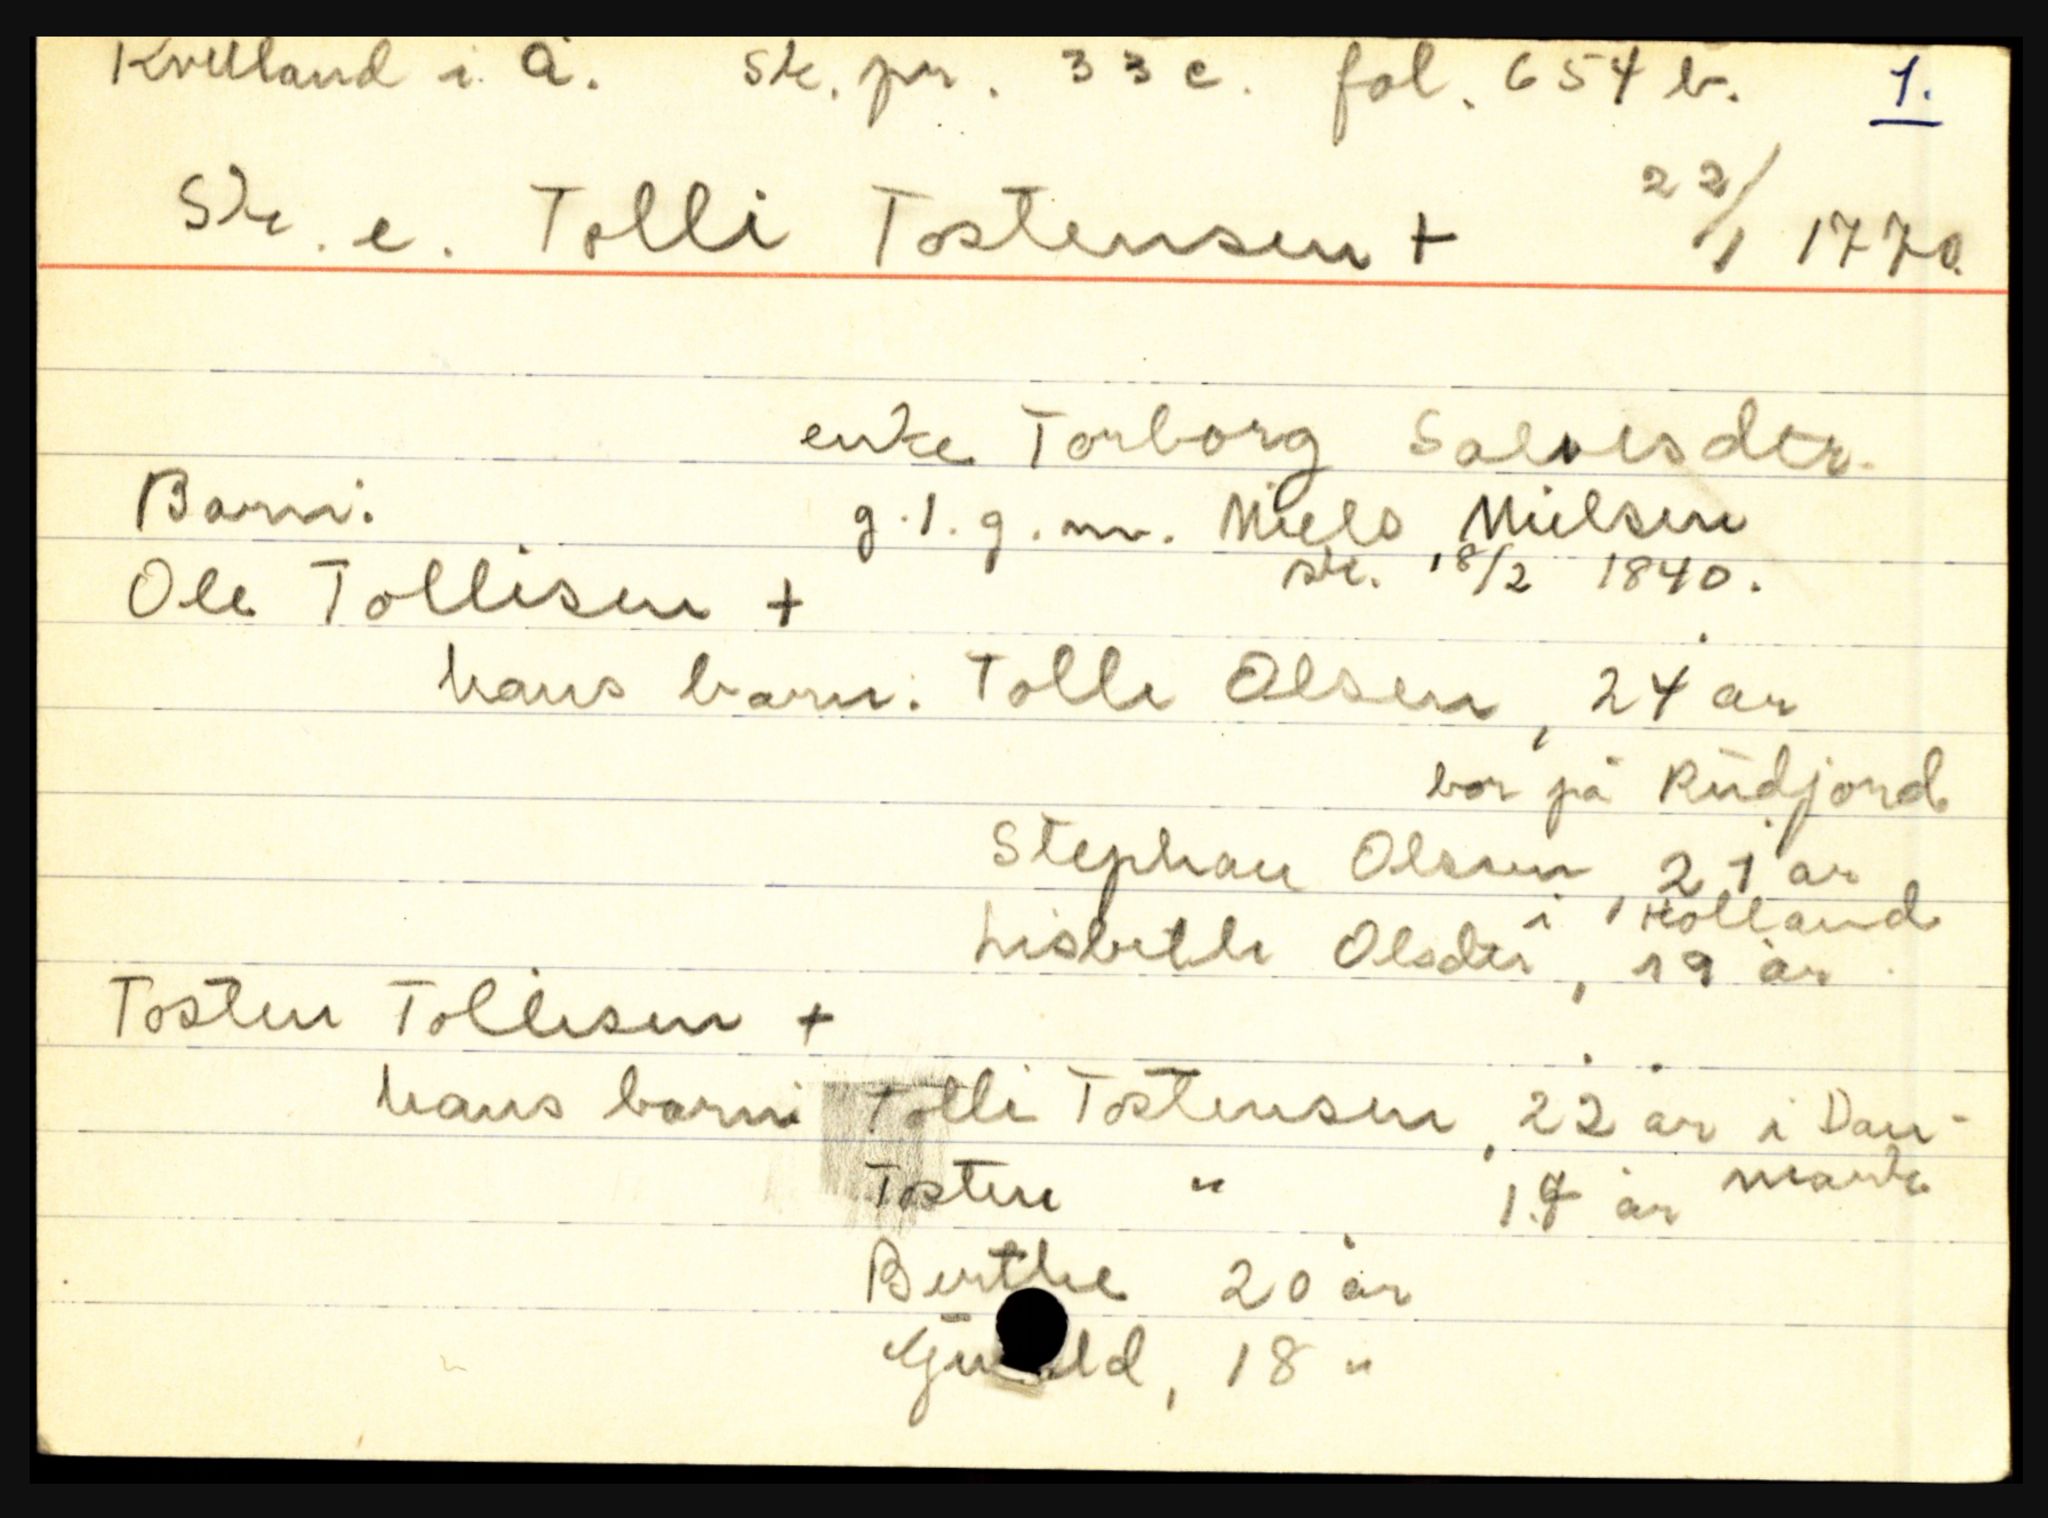 Kvelland i. Å. Sk. pr. 33 c. fol. 654 b. 1.
Sk. e. Tolli Tostensen + 22/1 1770.
enke Torborg Salvesdtr.
Barn: g. 1. g. m. Niels Nielsen
Ole Tollisen + sk. 18/2 1840.
hans barn: Tolle Olsen, 24 år
bor på Rudjord
Stephan Olsen, 21 år
i Holland
Lisbethe Olsdtr, 19 år
Tosten Tollisen +
hans barn: Tolli Tostensen, 22 år i Dan-
Tosten " år mark
Berthe 20 år
18 "